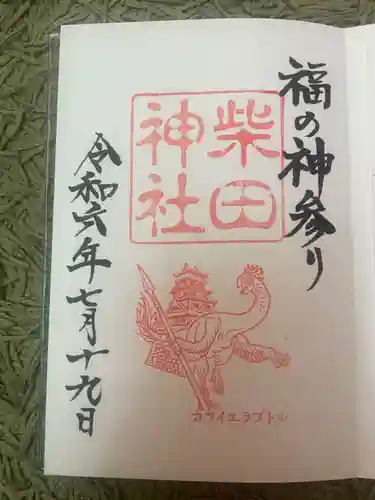 福の神参り
柴田
神社
カツイエラプトル
令和六年七月十九日